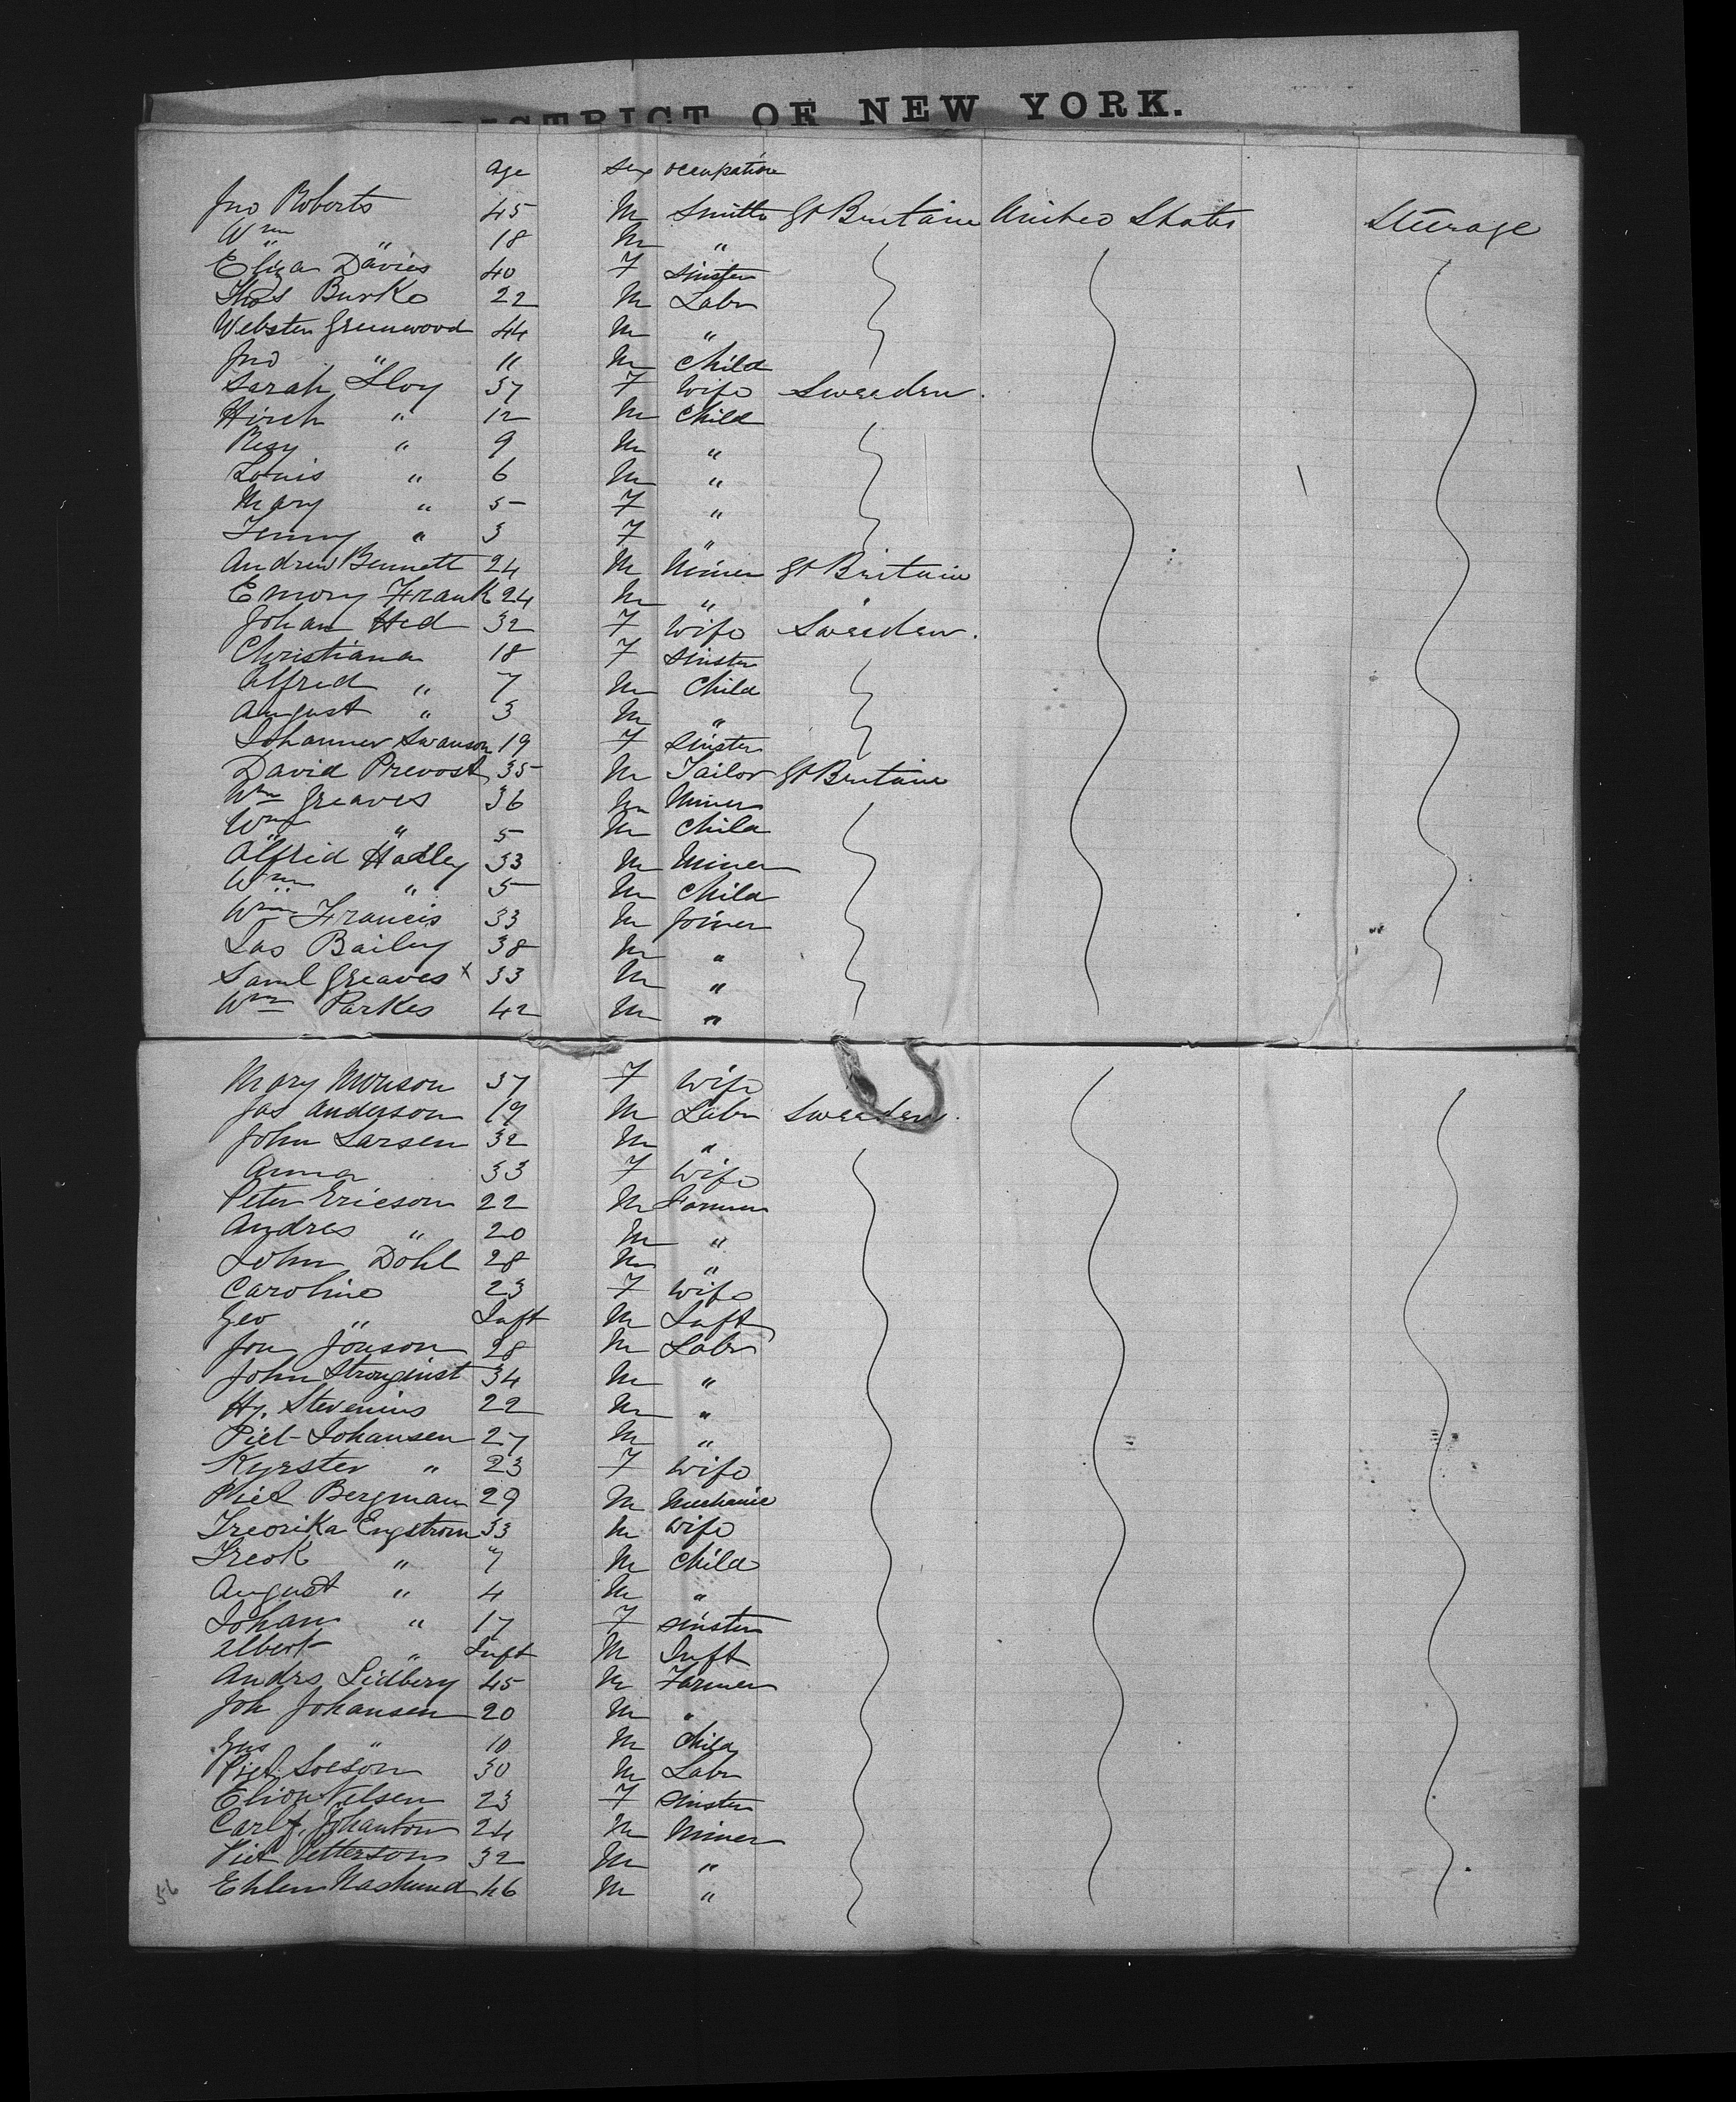 DISTRICT OF NEW YORK.
age sex occupation
Jno Roberts 45 M Smith Gt Britain United States Steerage
Wm " 18 M "
Eliza Davies 40 F Sinster
Thos Burke 22 M Labr
Webster Greenwood 44 M "
Jno " 11 M Child
Sarah 37 F Wife Sweeden.
Hirch " 12 M Child
" 9 M "
Louis " 6 M "
Mary " 5 F "
Jenny " 3 F "
Andrew Bennett 24 M Miner Gt Britain
Emory Frank 24 M "
Johan Hed 32 F Wife Sweeden.
Christiana 18 F Sinster
Alfred " 7 M Child
August " 3 M "
Johanner Swanson 19 F Sinster
David Prevost 35 M Tailor Gt Britain
Wm Greaves 36 M Miner
Wm " 5 M Child
Alfrid Hadley 33 M Miner
Wm " 5 M Child
Wm Francis 33 M Joiner
Jas Bailey 38 M "
Saml Greaves x 33 M "
Wm Parkes 42 M "
Mary Monson 37 F Wife
Jas Anderson 19 M Labr Sweeden.
John Larsen 32 M "
Anna 33 F Wife
Peter Ericson 22 M Farmer
Andres " 20 M "
John Dohl 28 M "
Caroline 23 F Wife
Geo " Inft M Inft
Jon Jonson 28 M Labr
John 34 M "
Hy. Stevenius 22 M "
Piet Johansen 27 M "
Kyrster " 23 F Wife
Piet Bergman 29 M Mechanic
Fredrika Engstrom 33 M Wife
Fredk " 7 M Child
August " 4 M "
Johan " 17 F Sinster
Albert " Inft M Inft
Andrs Lidberg 45 M Farmer
Joh Johansen 20 M "
Gus " 10 M Child
Piet 30 M Labr
Nelsen 23 F Sinster
Carl J. 24 M Miner
Piet Petterson 32 M "
Ehlen Naslund 46 M "
56